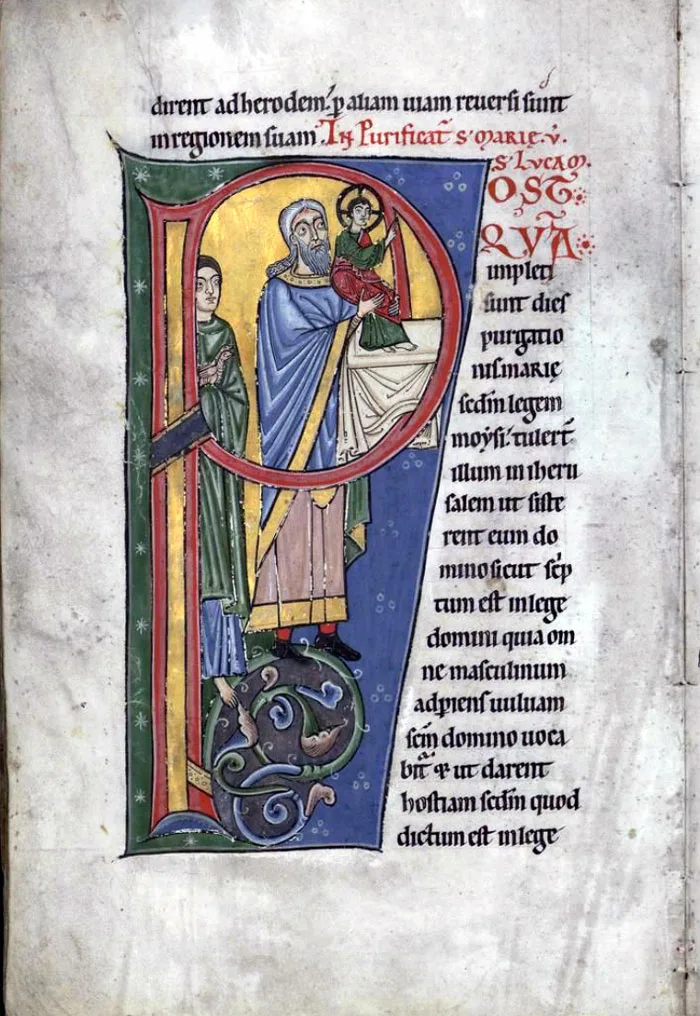 dirent ad herodem. p̱ aliam uiam reuersi sunt
in regionem suam. In Purificat̄ s. marie. v.
S. Lvcam.
P
OST
QVĀ
impleti
sunt dies
purgatio
nis marie
scdm̄ legem
moẏsi. tulert̄
illum in iheru
salem ut siste
rent eum do
mino sicut sc̄p
tum est in lege
domini quia om
ne masculinum
adp̱iens uuluam
sc̄m domino uoca
bit̄ & ut darent
hostiam scdm̄ quod
dictum est in lege